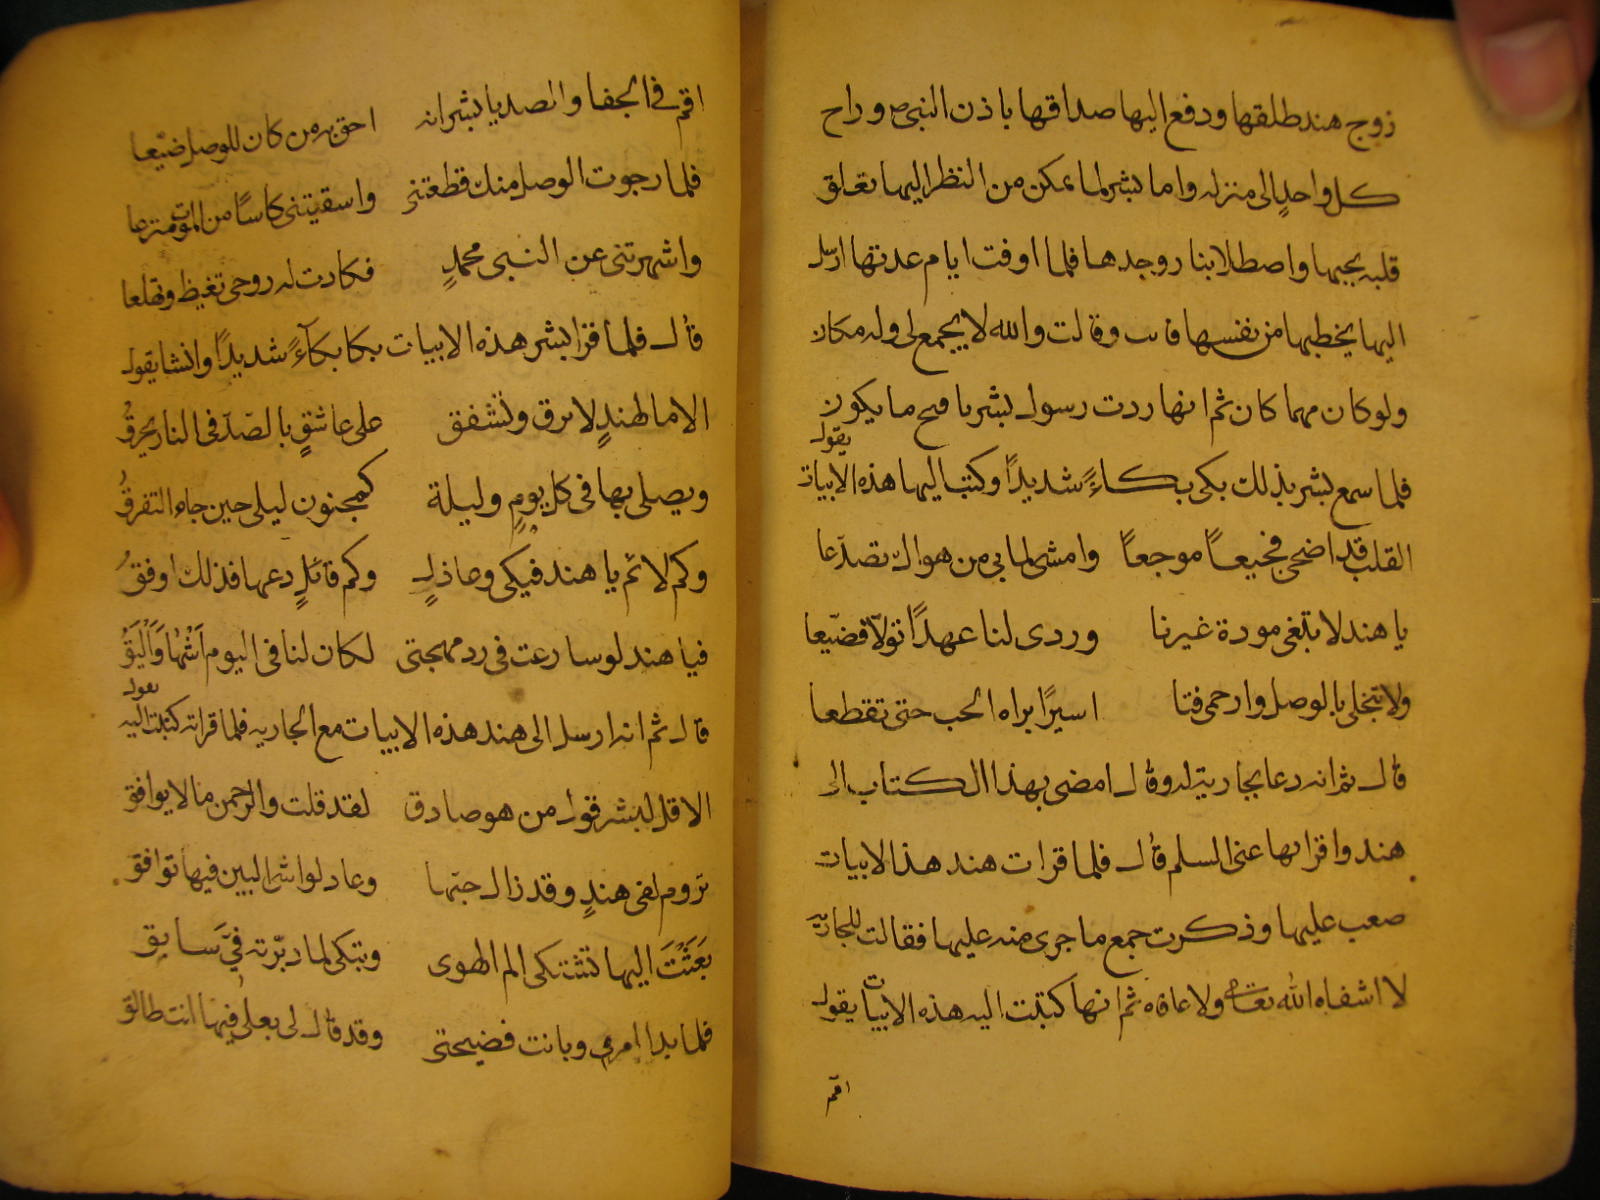 زوج هند طلقها ودفع اليها صداقها باذن النبي ص وراح
كل واحدٍ الى منزله واما بشر لما تمكن من النظر اليها تعلق
قلبه بحبها واصطلا بنار وجدها فلما اوفت ايام عدتها ارسل
اليها يخطبها من نفسها فابت وقالت والله لا يجمع لى وله مكان
ولو كان مهما كان ثم انها ردت رسول بشر باقبح ما يكون
فلما سمع بشر بذلك بكى بكاءً شديدًا وكتب اليها هذه الابيات يقول
القلب قد اضحى فجيعاً موجعاً وامشى لما بى من هواك تصدّعا
يا هند لا تبتغى مودة غيرنا وردى لنا عهدًا تولّا فضيّعا
ولا تبخلى بالوصل وارحمى فتا اسيرًا براه الحب حتى تقطعا
قال ثم انه دعا بجارية له وقال امضى بهذا الكتاب الى
هند واقرايها عنى السلم قال فلما قرات هند هذا الابيات
صعب عليها وذكرت جمع ما جرى منه عليها فقالت للجاريه
لا اشفاه الله تعالى ولا عافاه ثم انها كتبت اليه هذه الابيات يقول
اقم
اقم فى الجفا والصد يا بشر انه احق به من كان للوصل ضيّعا
فلما رجوت الوصل منك قطعتنى واسقيتنى كاسًا من الموت مترعا
واشهرتنى عن النبى محمدٍ فكادت له روحى تغيظ وتقلعا
قال فلما قرا بشر هذه الابيات بكا بكآءً شديدًا وانشا يقول
الا ما لهندٍ لا ترق وتشفق على عاشقٍ بالصدّ فى النار يحرقُ
ويصلى بها فى كل يومٍ وليلة كمجنون ليلى حين جاء التفرقُ
وكم لائم يا هند فيكى وعاذلٍ وكم قائلٍ دعها فذلك اوفقُ
فيا هند لو سارعت فى رد مهجتى لكان لنا فى اليوم اَشْهٰا وَاَلْيَقُ
قال ثم انه ارسل الى هند هذه الابيات مع الجاريه فلما قراته كتبت اليه يقول
الا قل لبشر قول من هو صادق لقد قلت والرحمن ما لا يوافق
تروم لقى هندٍ وقد زال حبّها وعاد لواشى البين فيها توافق
بَعَثْتَ اليها تشتكى الم الهوى وتبكى لما دبّرته فىَّ سابق
فلما بدا امرى وبانت فضيحتى وقد قال لى بعلى فيها انت طالق